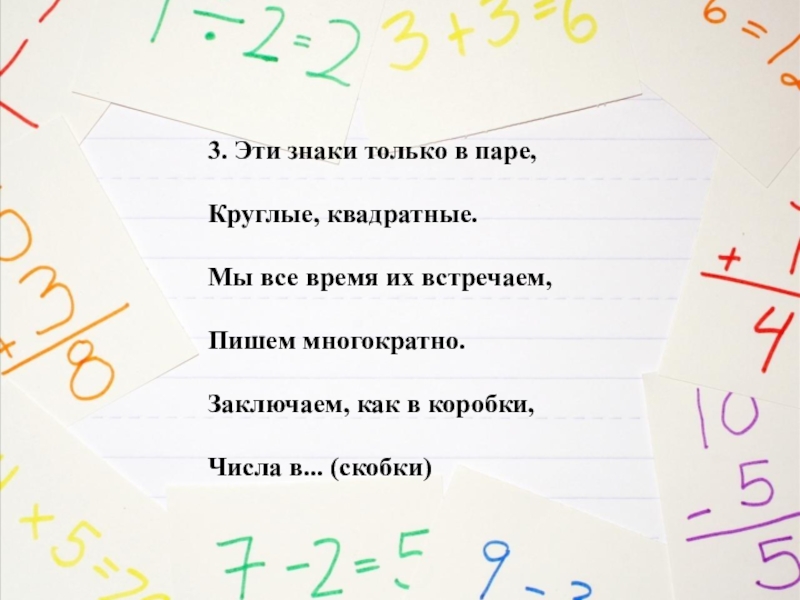 1 ÷ 2 = 2
3 + 3 = 6
6 =
3. Эти знаки только в паре,
Круглые, квадратные.
Мы все время их встречаем,
Пишем многократно.
Заключаем, как в коробки,
Числа в... (скобки)
3
8
+
4
10
- 5
5
+ 5 =
7 - 2 = 5
9 -